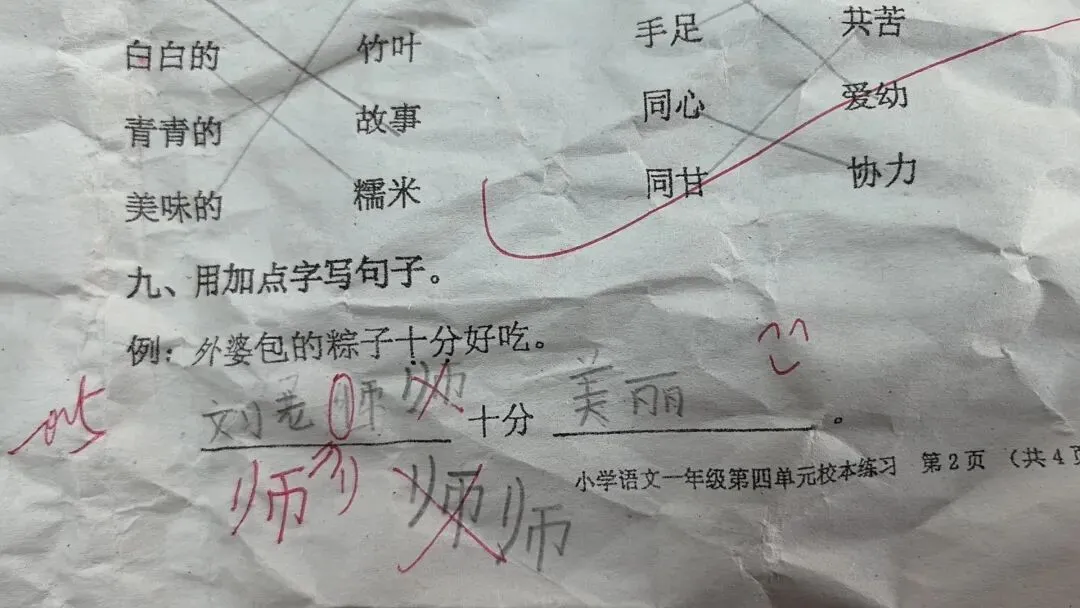 白白的 竹叶 手足 共苦
青青的 故事 同心 爱幼
美味的 糯米 同甘 协力
九、用加点字写句子。
例：外婆包的粽子十分好吃。
刘老师师十分美丽。
小学语文一年级第四单元校本练习 第2页 （共4页
师 师 师